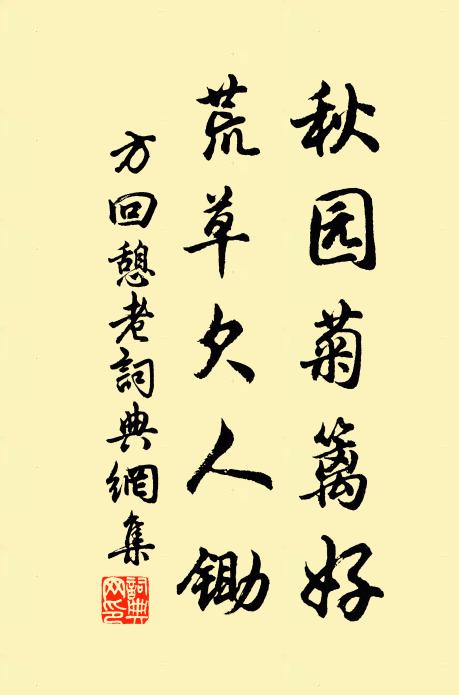 秋园菊篱好
荒草欠人锄
方回憩老詞典網集
詞典网印